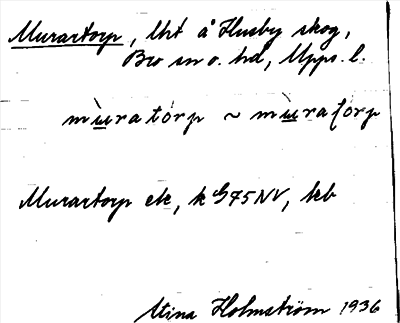 Murartorp, lht å Husby skog,
Bro sn o. hd, Upps. l.
mùratórp ~ mùraʃórp
Murartorp ek, k G75NV, kb
Stina Holmström 1936